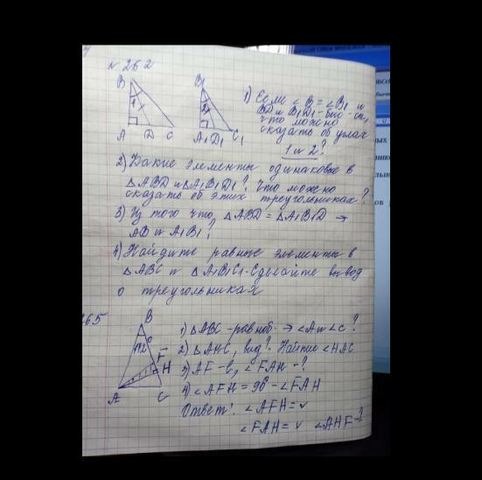 № 262
B B₁
1) Если ∠B = ∠B₁ и
BD и B₁D₁ - бис-сы,
что можно
сказать об углах
1 и 2?
A D C A₁ D₁ C₁
2) Какие элементы одинаковые в
△ABD и △A₁B₁D₁? Что можно
сказать об этих треугольниках?
3) Из того что, △ABD = △A₁B₁D →
AB и A₁B₁?
4) Найдите равные элементы в
△ABC и △A₁B₁C₁. Сделайте вывод
о треугольниках
265
B
1) △ABC - равноб. → ∠A и ∠C?
2) △AHC, вид? Найти ∠HAC
F
H
3) AF - б, ∠FAH - ?
4) ∠AFH = 90° - ∠FAH
A C
Ответ: ∠AFH = v
∠FAH = v ∠AHF - ?